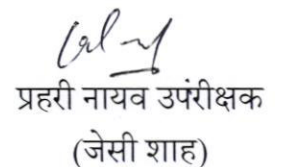 प्रहरी नायव उपंरीक्षक
(जेसी शाह)